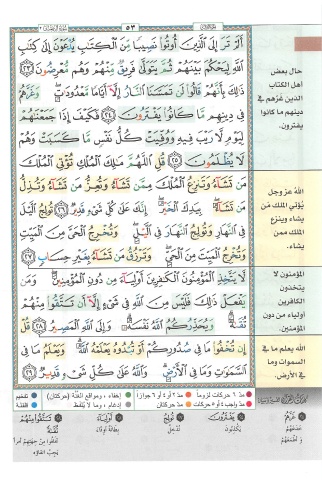 ٥٣
أَلَمْ تَرَ إِلَى ٱلَّذِينَ أُوتُوا۟ نَصِيبًا مِّنَ ٱلْكِتَٰبِ يُدْعَوْنَ إِلَىٰ كِتَٰبِ
ٱللَّهِ لِيَحْكُمَ بَيْنَهُمْ ثُمَّ يَتَوَلَّىٰ فَرِيقٌ مِّنْهُمْ وَهُم مُّعْرِضُونَ ٢٣
ذَٰلِكَ بِأَنَّهُمْ قَالُوا۟ لَن تَمَسَّنَا ٱلنَّارُ إِلَّآ أَيَّامًا مَّعْدُودَٰتٍ وَغَرَّهُمْ
فِى دِينِهِم مَّا كَانُوا۟ يَفْتَرُونَ ٢٤ فَكَيْفَ إِذَا جَمَعْنَٰهُمْ
لِيَوْمٍ لَّا رَيْبَ فِيهِ وَوُفِّيَتْ كُلُّ نَفْسٍ مَّا كَسَبَتْ وَهُمْ
لَا يُظْلَمُونَ ٢٥ قُلِ ٱللَّهُمَّ مَٰلِكَ ٱلْمُلْكِ تُؤْتِى ٱلْمُلْكَ
مَن تَشَآءُ وَتَنزِعُ ٱلْمُلْكَ مِمَّن تَشَآءُ وَتُعِزُّ مَن تَشَآءُ وَتُذِلُّ
مَن تَشَآءُ بِيَدِكَ ٱلْخَيْرُ إِنَّكَ عَلَىٰ كُلِّ شَىْءٍ قَدِيرٌ ٢٦ تُولِجُ ٱلَّيْلَ
فِى ٱلنَّهَارِ وَتُولِجُ ٱلنَّهَارَ فِى ٱلَّيْلِ وَتُخْرِجُ ٱلْحَىَّ مِنَ ٱلْمَيِّتِ
وَتُخْرِجُ ٱلْمَيِّتَ مِنَ ٱلْحَىِّ وَتَرْزُقُ مَن تَشَآءُ بِغَيْرِ حِسَابٍ ٢٧
لَّا يَتَّخِذِ ٱلْمُؤْمِنُونَ ٱلْكَٰفِرِينَ أَوْلِيَآءَ مِن دُونِ ٱلْمُؤْمِنِينَ وَمَن
يَفْعَلْ ذَٰلِكَ فَلَيْسَ مِنَ ٱللَّهِ فِى شَىْءٍ إِلَّآ أَن تَتَّقُوا۟ مِنْهُمْ
تُقَىٰةً وَيُحَذِّرُكُمُ ٱللَّهُ نَفْسَهُۥ وَإِلَى ٱللَّهِ ٱلْمَصِيرُ ٢٨ قُلْ
إِن تُخْفُوا۟ مَا فِى صُدُورِكُمْ أَوْ تُبْدُوهُ يَعْلَمْهُ ٱللَّهُ وَيَعْلَمُ مَا فِى
ٱلسَّمَٰوَٰتِ وَمَا فِى ٱلْأَرْضِ وَٱللَّهُ عَلَىٰ كُلِّ شَىْءٍ قَدِيرٌ ٢٩
حال بعض
أهل الكتاب
الذين غرهم في
دينهم ما كانوا
يفترون.
الله عز وجل
يؤتي الملك من
يشاء وينزع
الملك ممن
يشاء.
المؤمنون لا
يتخذون
الكافرين
أولياء من دون
المؤمنين.
الله يعلم ما في
السموات وما
في الأرض.
مد ٦ حركات لزوماً
مد ٢ أو ٤ أو ٦ جوازاً
إخفاء، ومواقع الغنّة (حركتان)
تفخيم
مد واجب ٤ أو ٥ حركات
مد حركتان
إدغام، وما لا يُلفظ
قلقلة
غَرَّهُمْ
يَفْتَرُونَ
تُولِجُ
أَوْلِيَآءَ
تَتَّقُوا۟ مِنْهُمْ
خَدَعَهُمْ
تُدْخِلُ